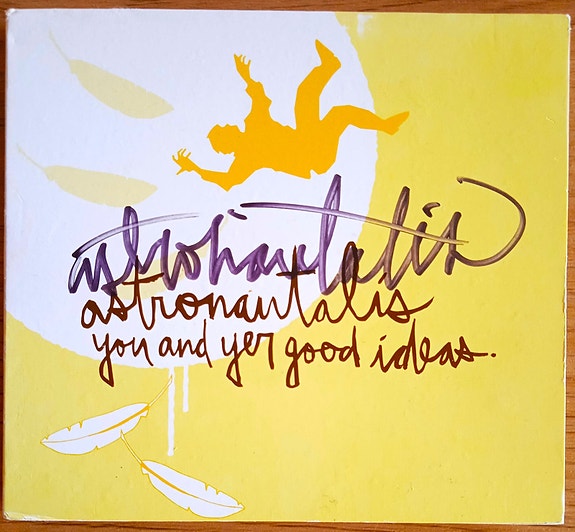 astronautalis
astronautalis
you and yer good ideas.